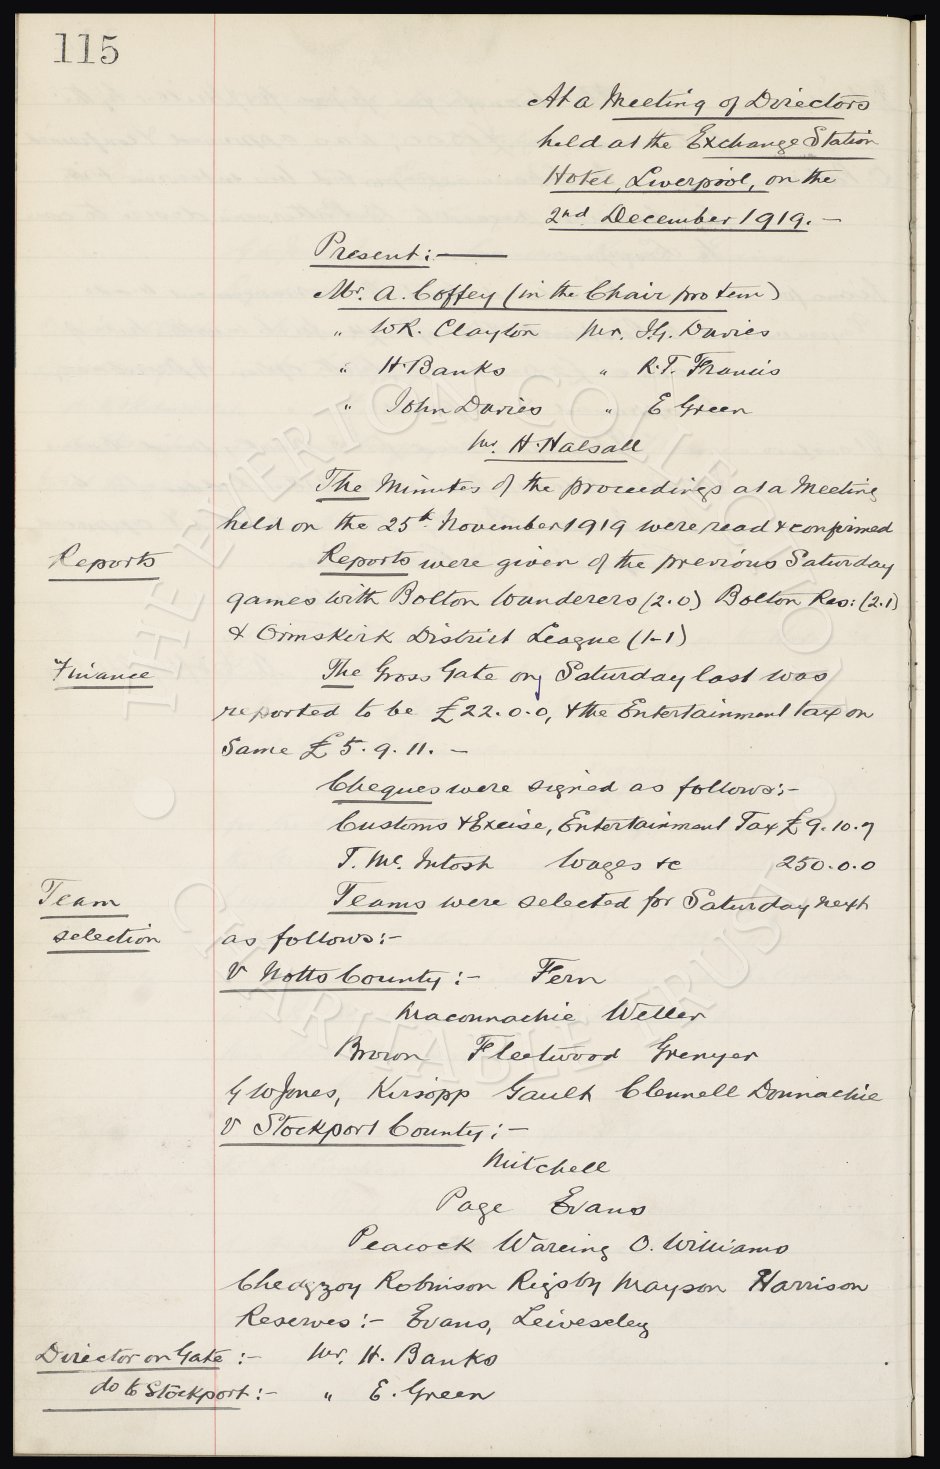 115
At a Meeting of Directors
held at the Exchange Station
Hotel, Liverpool, on the
2nd December 1919. —
Present: —
Mr. A. Coffey (in the Chair pro tem)
" W.R. Clayton Mr. J.G. Davies
" H. Banks " R.T. Francis
" John Davies " E Green
Mr. H. Halsall
The Minutes of the proceedings at a Meeting
held on the 25th November 1919 were read & confirmed
Reports
Reports were given of the previous Saturday
games with Bolton Wanderers (2.0) Bolton Res: (2.1)
& Ormskirk District League (1-1)
Finance
The Gross Gate on Saturday last was
reported to be £22.0.0, & the Entertainment tax on
same £5.9.11. —
Cheques were signed as follows:-
Customs & Excise, Entertainment Tax £9.10.7
T. Mc. Intosh Wages &c 250.0.0
Team
selection
Teams were selected for Saturday next
as follows:-
V Notts County:- Fern
Maconnachie Weller
Brown Fleetwood Grenyer
G W Jones, Kirsopp Gault Clennell Donnachie
V Stockport County:-
Mitchell
Page Evans
Peacock Wareing O. Williams
Chedgzoy Robinson Rigsby Mayson Harrison
Reserves:- Evans, Leiveseley
Director on Gate:- Mr. H. Banks
do to Stockport:- " E. Green
THE EVERTON COLLECTION
CHARITABLE TRUST